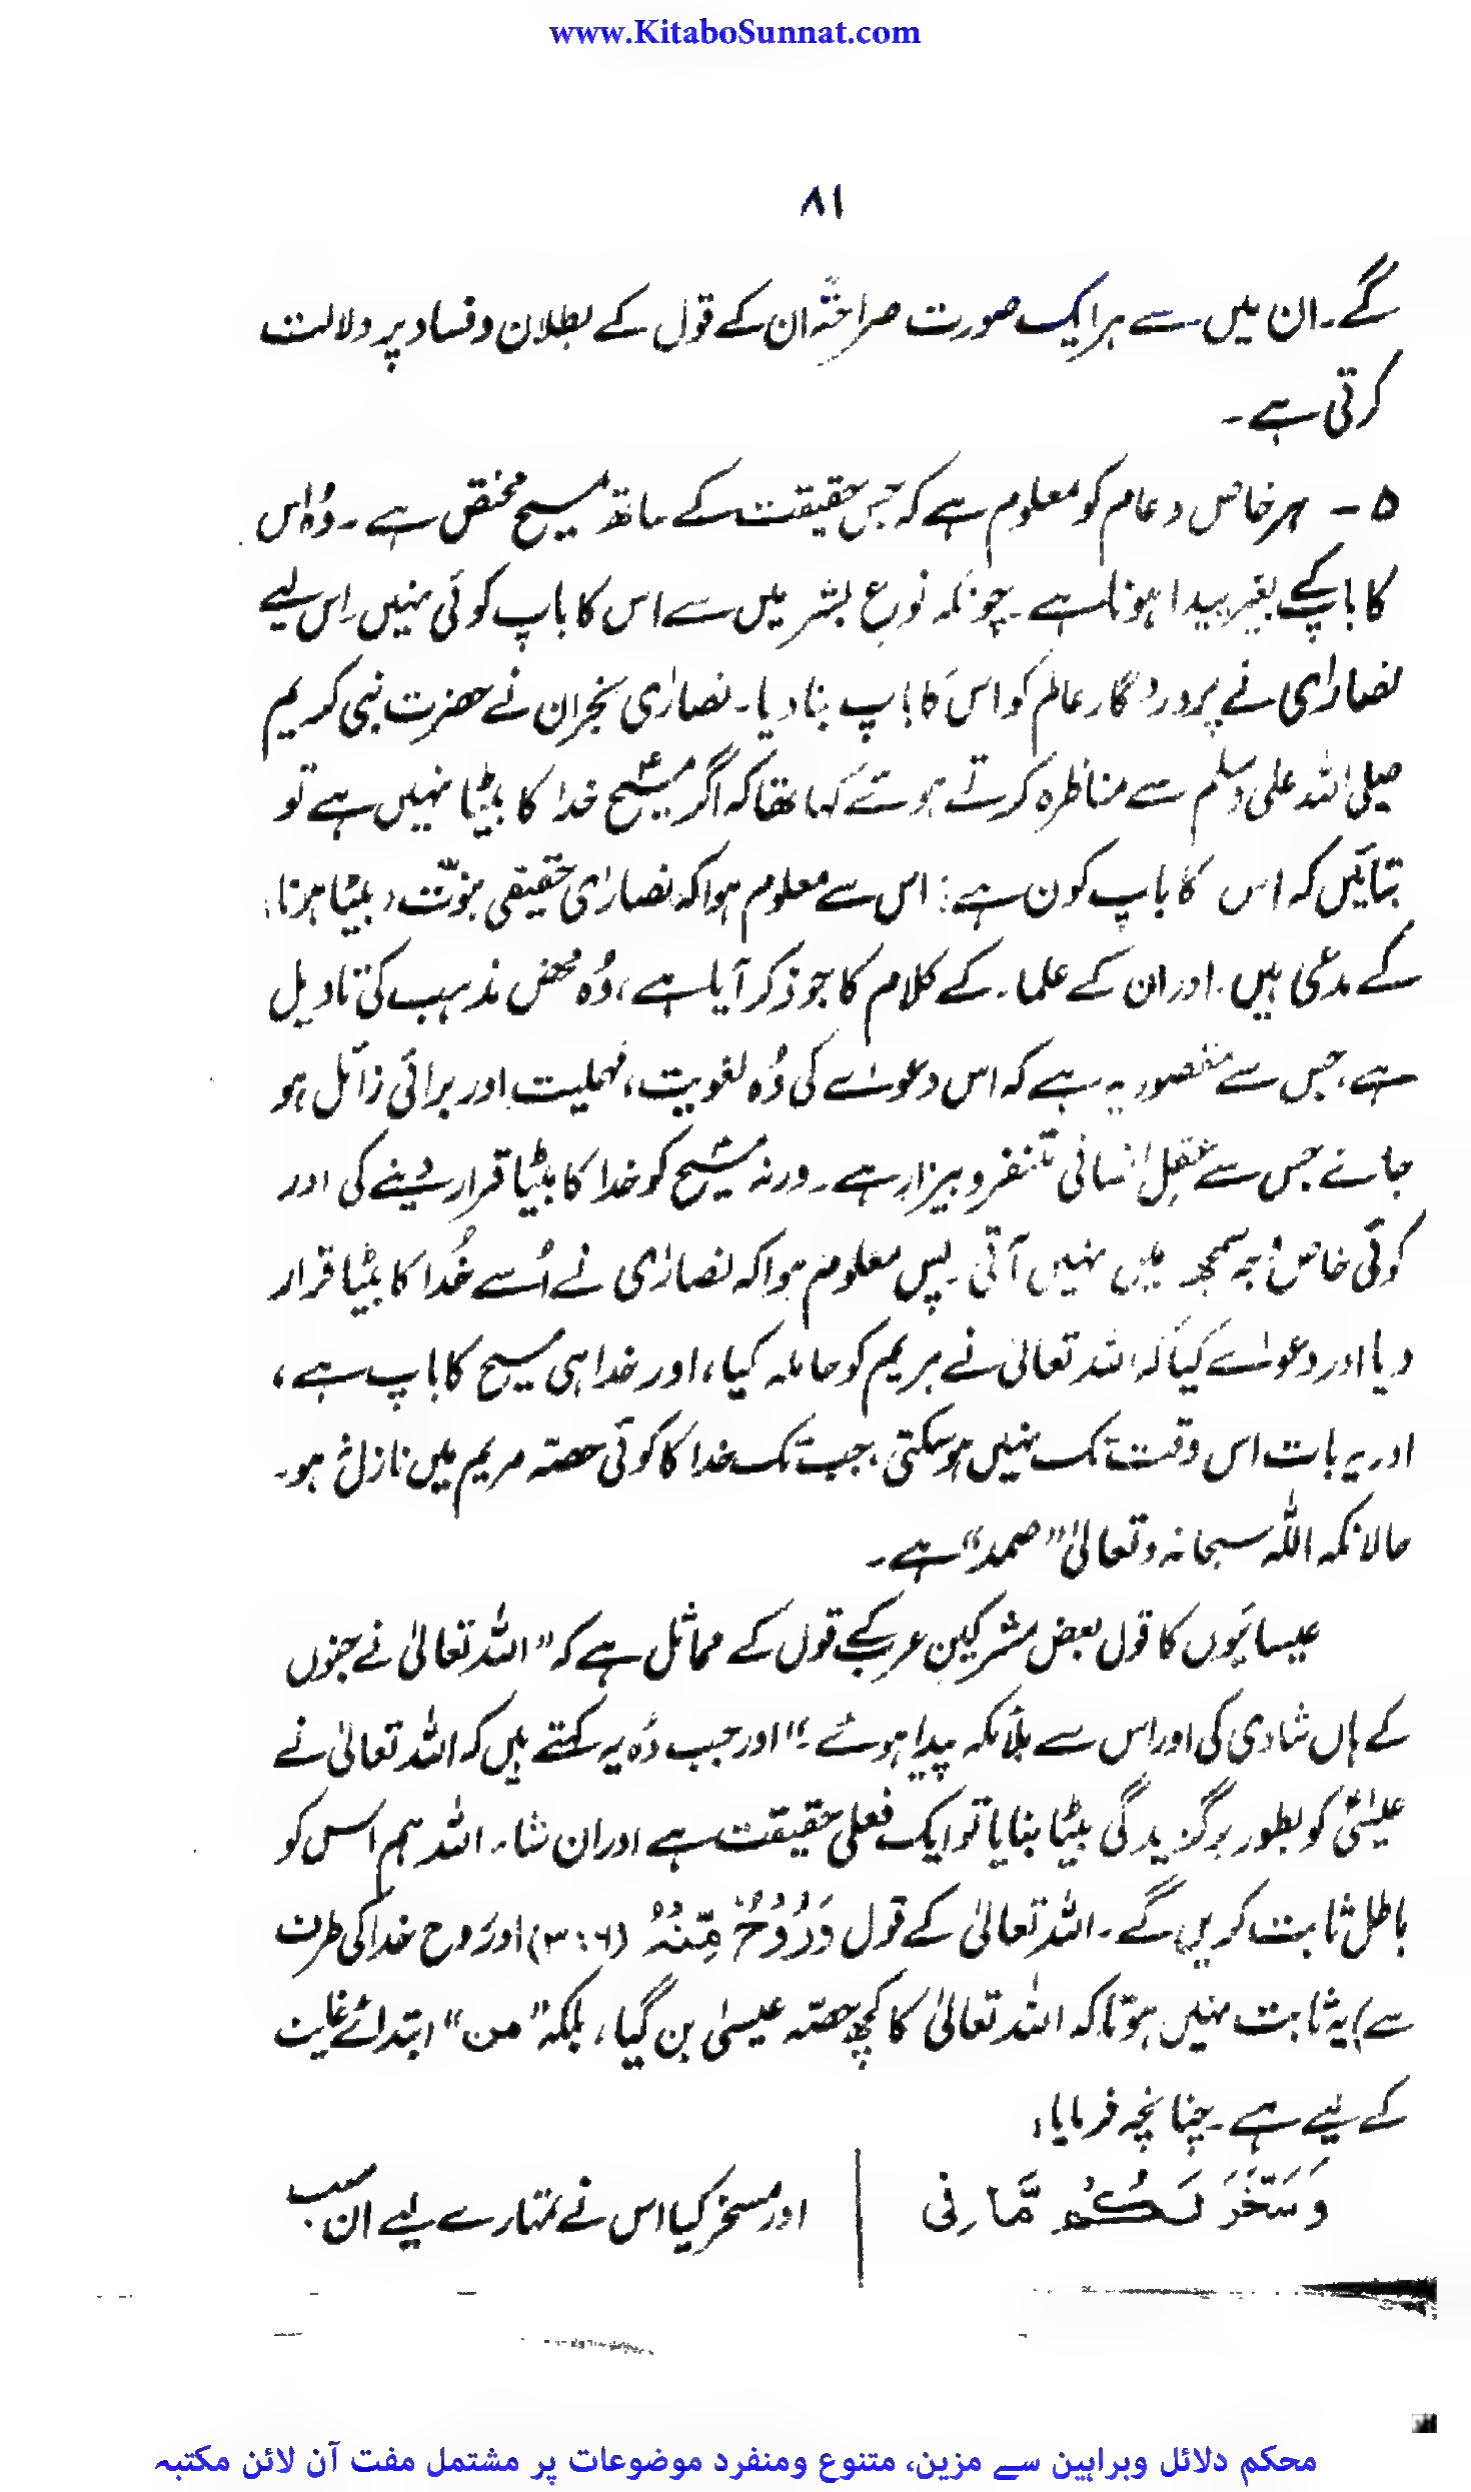 www.KitaboSunnat.com
۸۱
گے۔ ان میں سے ہر ایک صورت صراحتہً ان کے قول کے بطلان و فساد پر دلالت
کرتی ہے۔
۵ - ہر خاص و عام کو معلوم ہے کہ جس حقیقت کے ساتھ مسیح مختص ہے۔ وُہ اس
کا باپ کے بغیر پیدا ہونا ہے۔ چونکہ نوع بشر میں سے اس کا باپ کوئی نہیں۔ اس لیے
نصارٰی نے پروردگار عالم کو اس کا باپ بنا دیا۔ نصارٰی نجران نے حضرت نبی کریم
صلی اللہ علی وسلم سے مناظرہ کرتے ہوئے کہا تھا کہ اگر مسیحؑ خدا کا بیٹا نہیں ہے تو
بتائیں کہ اس کا باپ کون ہے: اس سے معلوم ہوا کہ نصارٰی حقیقی بنوّت (بیٹا ہونا)
کے مدعی ہیں۔ اور ان کے علماء کے کلام کا جو ذکر آیا ہے، وُہ محض مذہب کی تاویل
ہے، جس سے مقصود یہ ہے کہ اس دعوٰے کی وُہ لغویت، مہملیت اور برائی زائل ہو
جائے جس سے عقلِ انسانی متنفر و بیزار ہے۔ ورنہ مسیحؑ کو خدا کا بیٹا قرار دینے کی اور
کوئی خاص وجہ سمجھ میں نہیں آتی۔ پس معلوم ہوا کہ نصارٰی نے اُسے خُدا کا بیٹا قرار
دیا اور دعوٰے کیا کہ اللہ تعالیٰ نے مریم کو حاملہ کیا، اور خدا ہی مسیح کا باپ ہے،
اور یہ بات اس وقت تک نہیں ہو سکتی۔ جب تک خدا کا کوئی حصہ مریم میں نازل نہ ہو۔
حالانکہ اللہ سبحانہ و تعالیٰ "صمد" ہے۔
عیسائیوں کا قول بعض مشرکین عرب کے قول کے مماثل ہے کہ "اللہ تعالیٰ نے جنوں
کے ہاں شادی کی اور اس سے ملائکہ پیدا ہوئے۔" اور جب وُہ یہ کہتے ہیں کہ اللہ تعالیٰ نے
عیسٰیؑ کو بطور برگزیدگی بیٹا بنایا تو ایک فعلی حقیقت ہے اور ان شاء اللہ ہم اس کو
باطل ثابت کریں گے۔ اللہ تعالیٰ کے قول وَرُوْحٌ مِّنْهُ (۳:۶) اور روح خدا کی طرف
سے) یہ ثابت نہیں ہوتا کہ اللہ تعالیٰ کا کچھ حصّہ عیسیٰ بن گیا، بلکہ "من" ابتدائے غایت
کے لیے ہے۔ چنانچہ فرمایا:
وَسَخَّرَ لَكُمْ مَّا فِى | اور مسخر کیا اس نے تمہارے لیے ان سب
محکم دلائل وبراہین سے مزین، متنوع ومنفرد موضوعات پر مشتمل مفت آن لائن مکتبہ